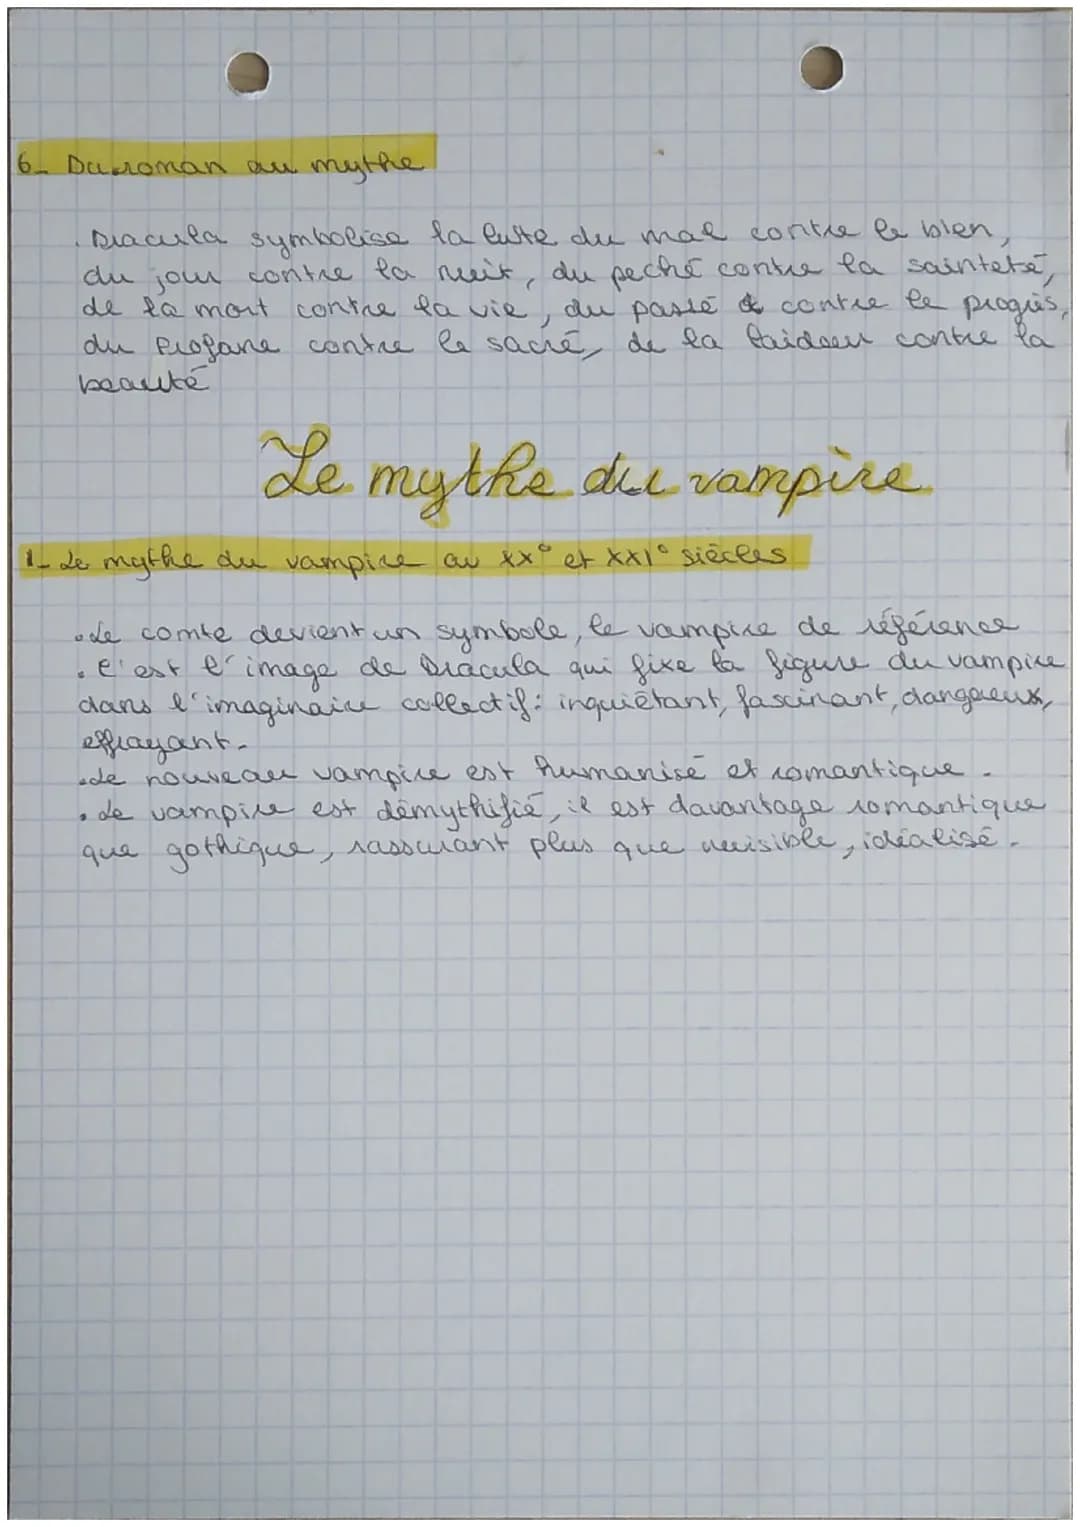 6- Du roman au mythe
. Dracula symbolise la lutte du mal contre le bien,
du jour contre la nuit, du peché contre la sainteté,
de la mort contre la vie, du passé contre le progrès,
du Profane contre le sacré, de la laideur contre la
beauté
Le mythe du vampire
1- Le mythe du vampire au XX° et XXI° siècles
. Le comte devient un symbole, le vampire de référence
. C'est l'image de Dracula qui fixe la figure du vampire
dans l'imaginaire collectif: inquiétant, fascinant, dangereux,
effrayant.
. Le nouveau vampire est humanisé et romantique.
. Le vampire est démythifié, il est davantage romantique
que gothique, rassurant plus que nuisible, idéalisé.